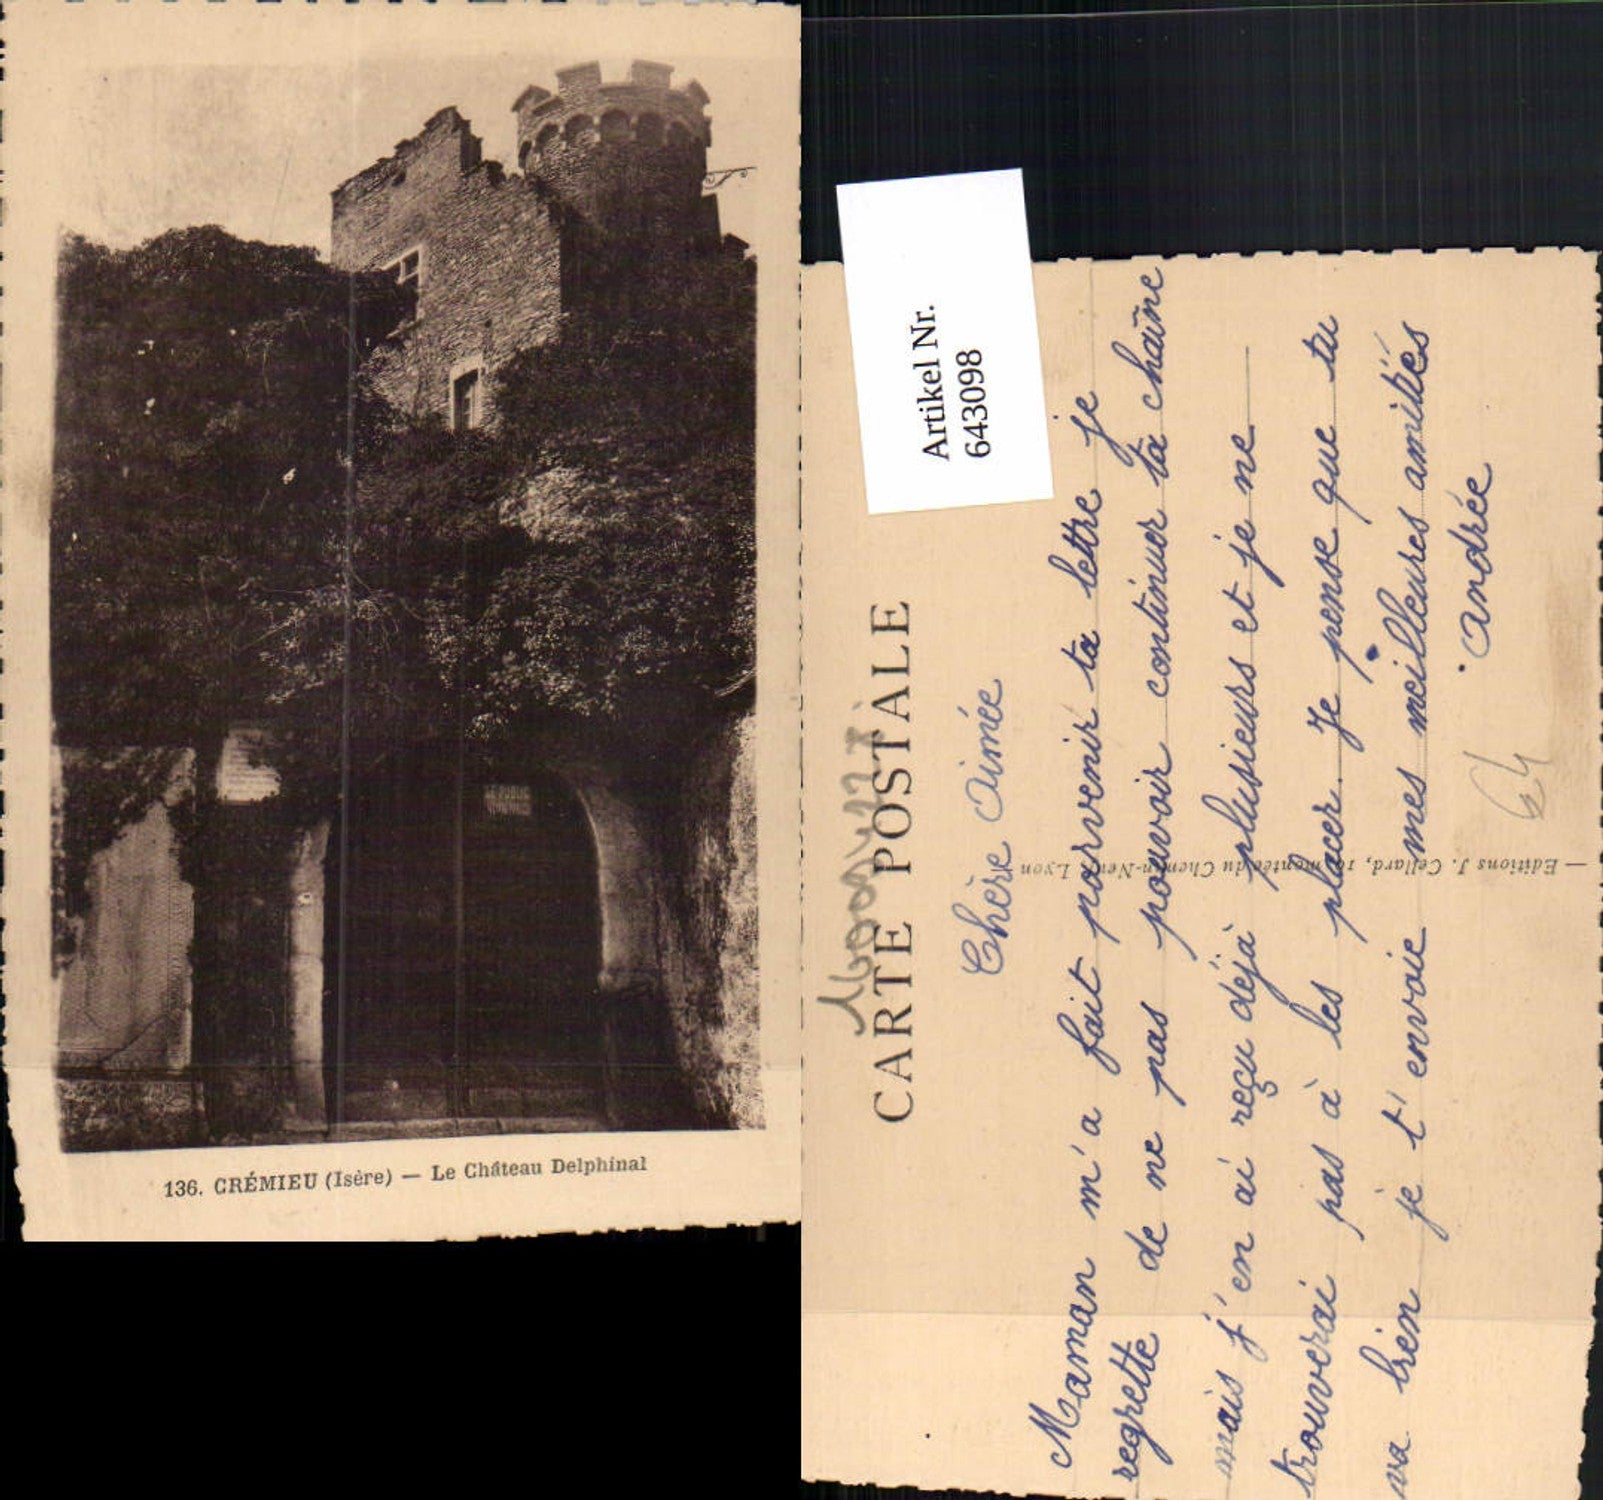 136. CRÉMIEU (Isère) — Le Château Delphinal
Artikel Nr.
643098
CARTE POSTALE
Chère Aimée
Maman m'a fait parvenir ta lettre je
regrette de ne pas pouvoir continuer ta chaîne
mais j'en ai reçu déjà plusieurs et je ne
trouverai pas à les placer. Je pense que tu
va bien je t'envoie mes meilleures amitiés
Andrée
— Editions J. Cellard, montée du Chemin-Neuf, Lyon